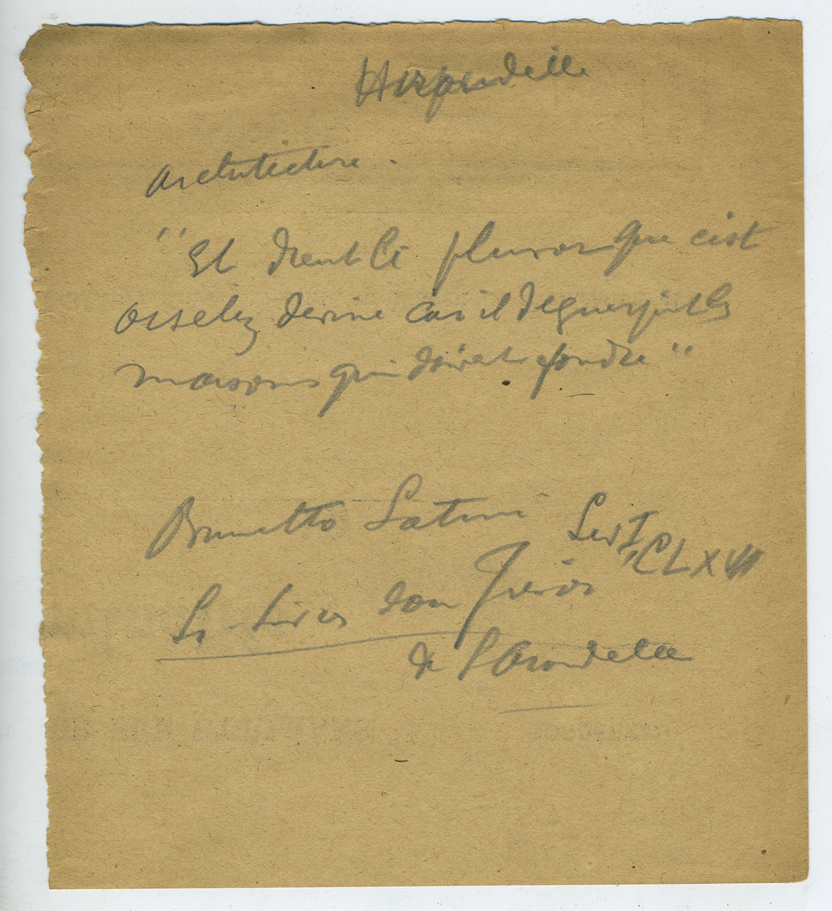 Hirondelle
architecture.
"Et dient li plusor que c'est
oiselez devine car il deguerpist les
maisons qui doivent fondre"
Brunetto Latini Liv I
CLXVII
Li Livres dou Tresor
de l'Arondelle